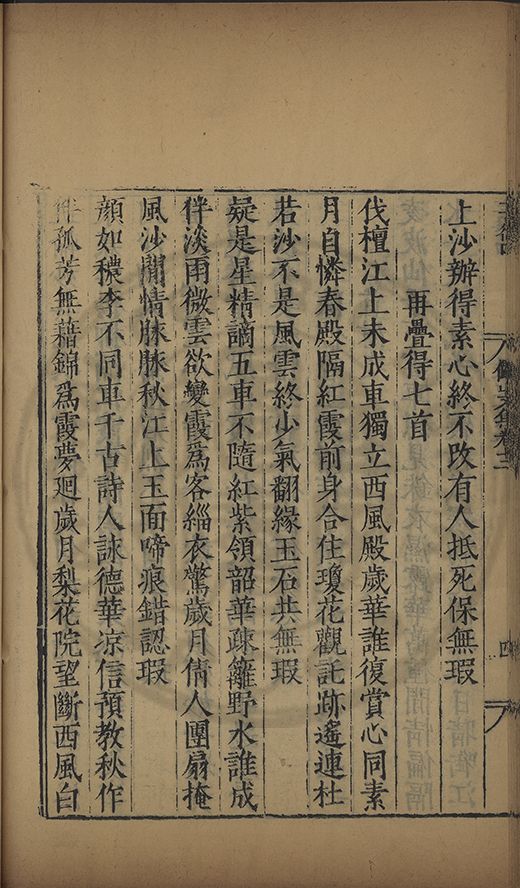 上沙辦得素心終不改有人抵死保無瑕
再疊得七首
伐檀江上未成車獨立西風殿歲華誰復賞心同素
月自憐春殿隔紅霞前身合住瓊花觀託跡遙連杜
若沙不是風雲終少氣翻緣玉石共無瑕
疑是星精謫五車不隨紅紫領韶華疎籬野水誰成
伴淡雨微雲欲變霞爲客緇衣驚歲月倩人團扇掩
風沙閒情脉脉秋江上玉面啼痕錯認瑕
顔如穠李不同車千古詩人詠德華凉信預教秋作
伴孤芳無藉錦爲霞夢廻歲月梨花院望斷西風白